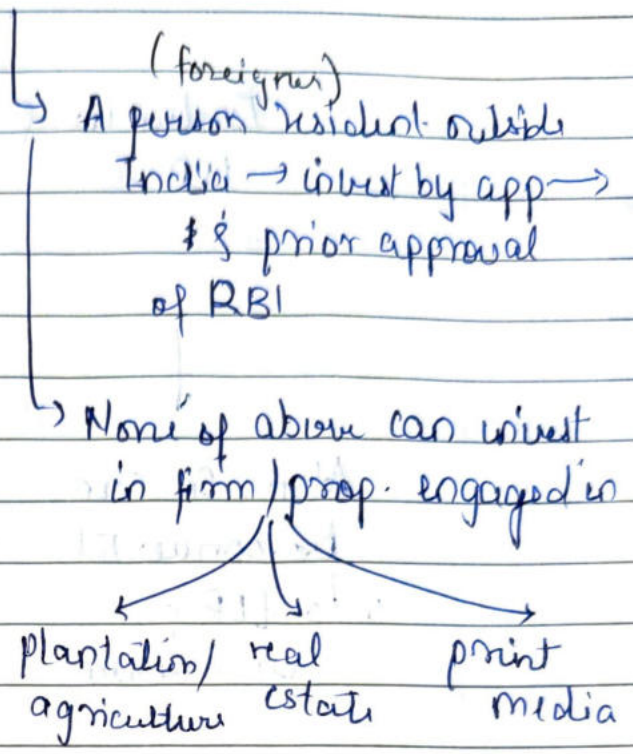 (foreigner)
↳ A person resident outside
India → invest by app →
& prior approval
of RBI
↳ None of above can invest
in firm/prop. engaged in
plantation/ real print
agriculture estate media